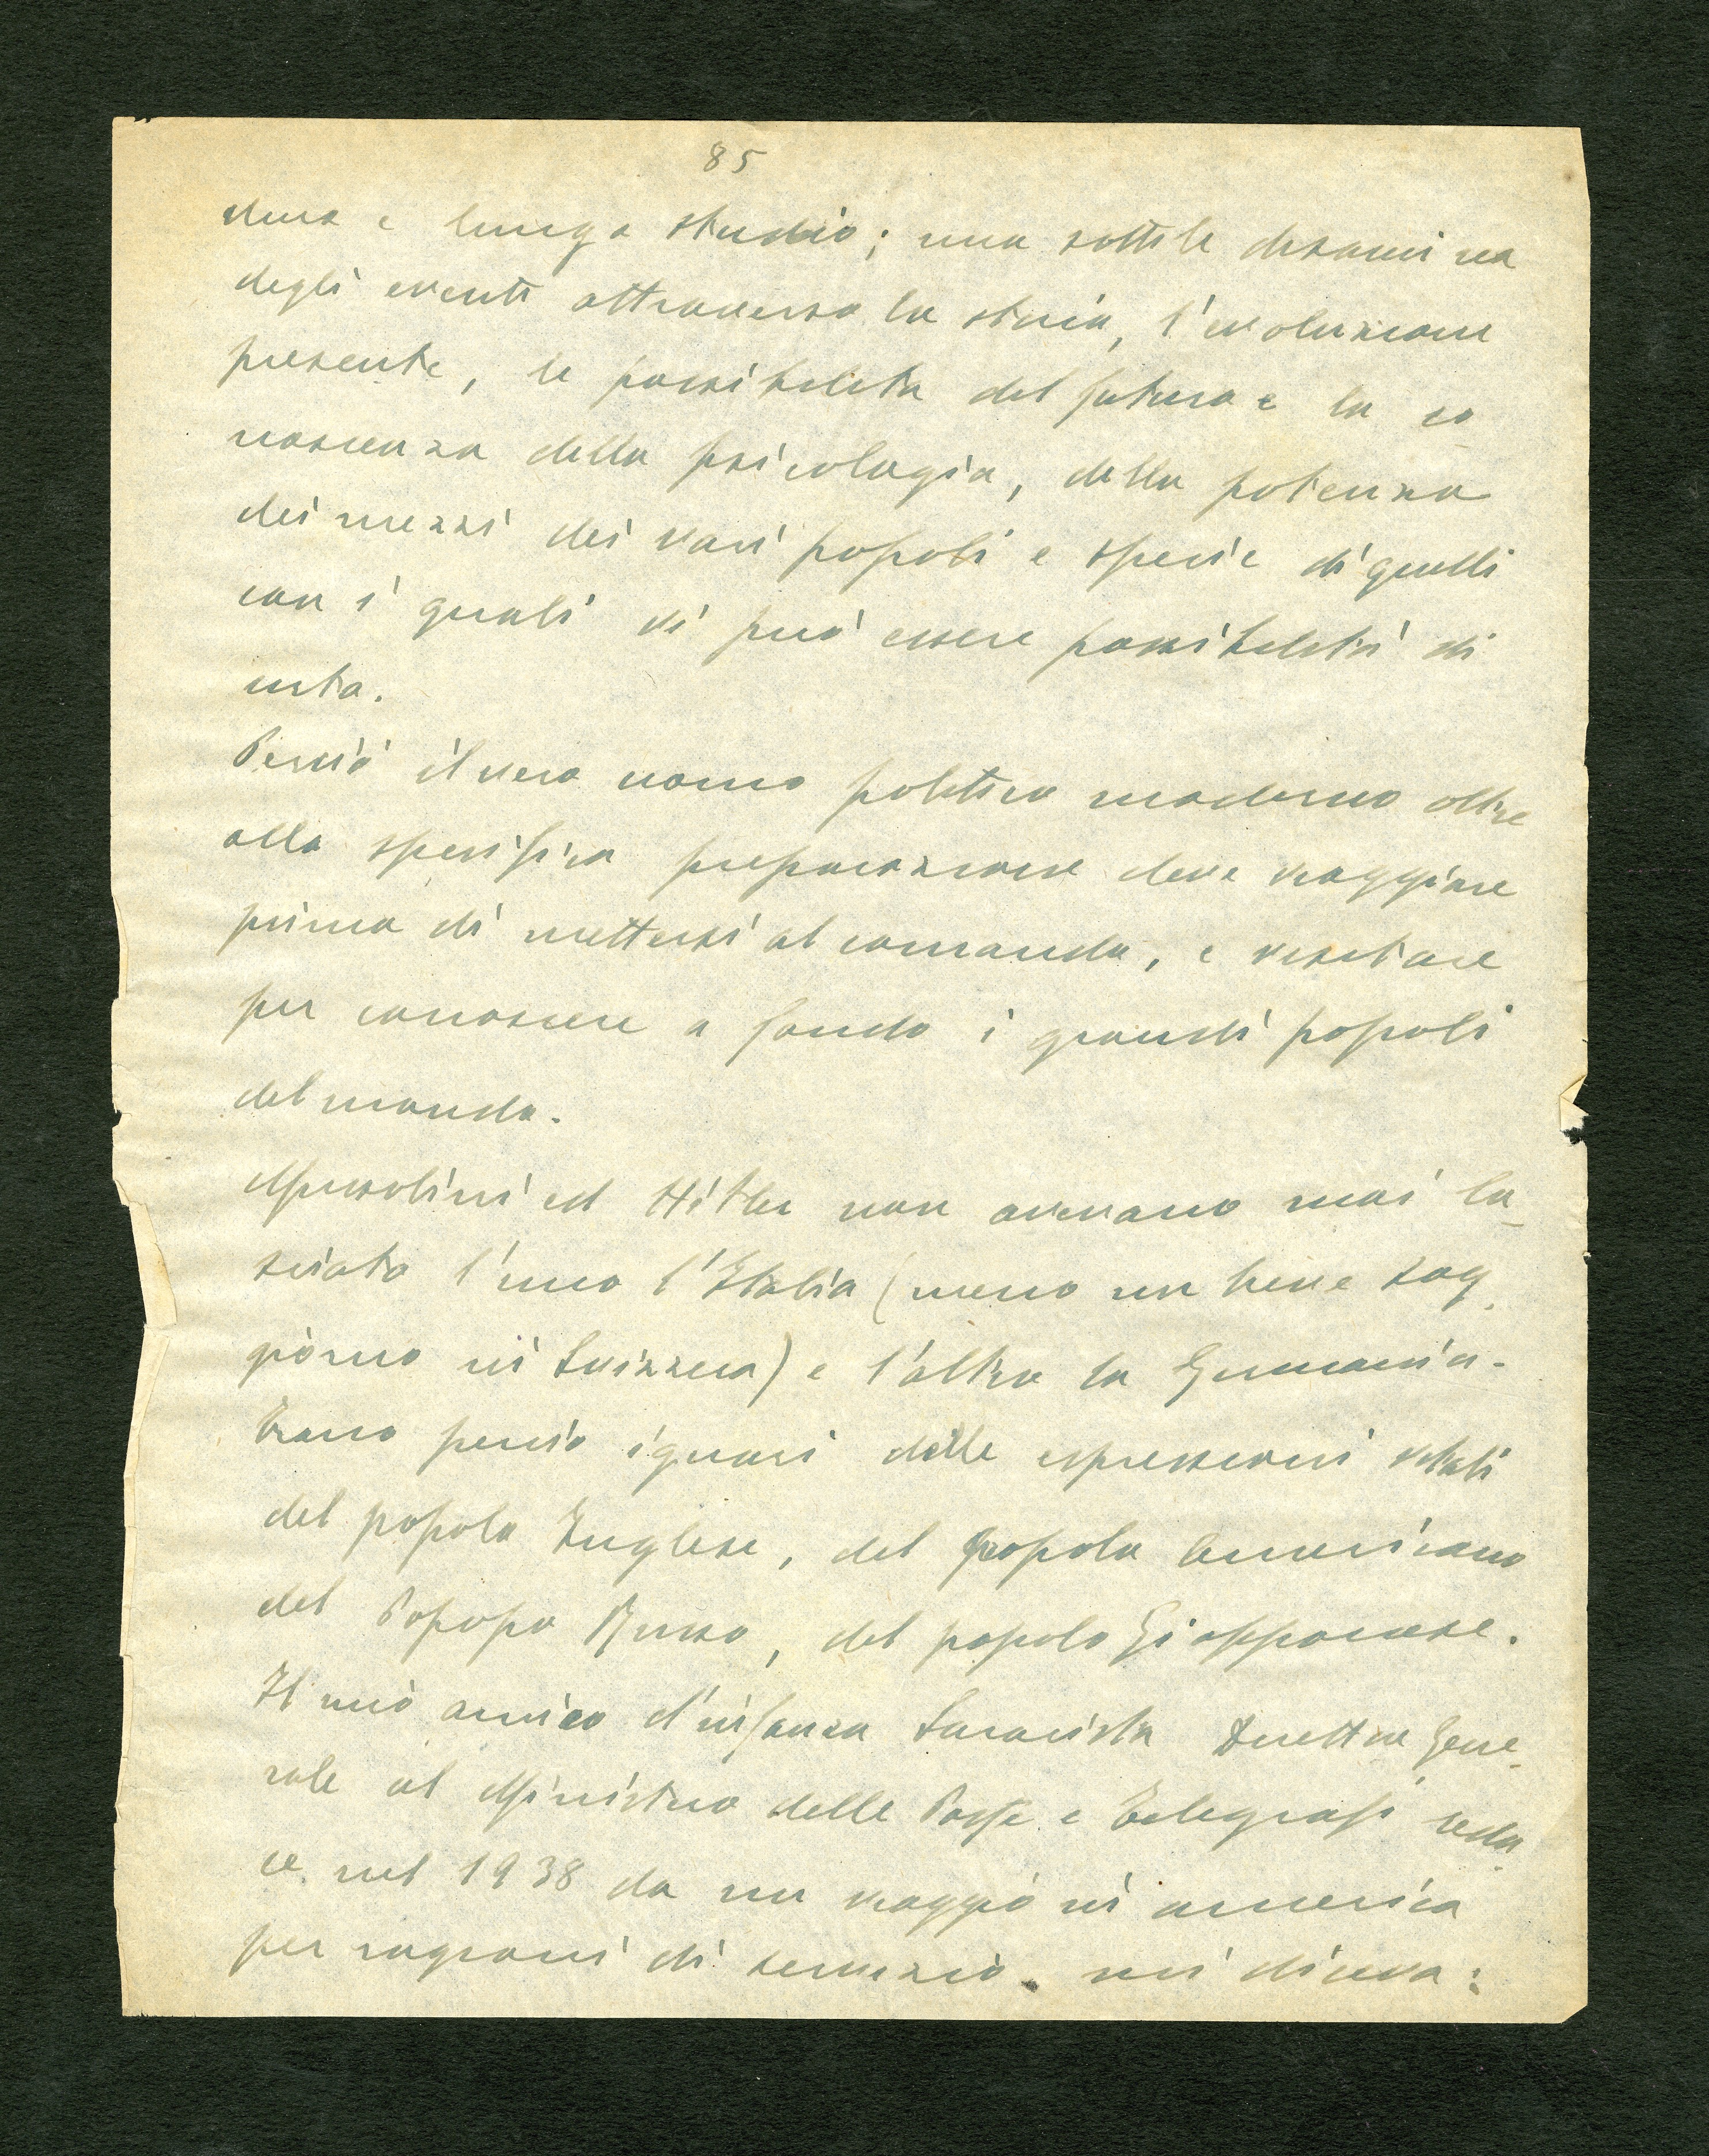 85
duro e lungo studio; una sottile disamina
degli eventi attraverso la storia, l'evoluzione
presente, le possibilità del futuro e la co
noscenza della psicologia, della potenza
dei mezzi dei vari popoli e specie di quelli
con i quali vi può essere possibilità di
urto.
Perciò il vero uomo politico moderno oltre
alla specifica preparazione deve viaggiare
prima di mettersi al comando, e visitare
per conoscere a fondo i grandi popoli
del mondo.
Mussolini ed Hitler non avevano mai la-
sciato l'uno l'Italia (meno un breve sog-
giorno in Svizzera) e l'altro la Germania.
Erano perciò ignari delle espressioni vitali
del popolo Inglese, del popolo americano
del Popopo Russo, del popolo Giapponese.
Il mio amico d'infanza Direttore Gene-
rale al Ministero delle Poste e Telegrafi redu-
ce nel 1938 da un viaggio in america
per ragioni di servizio. mi diceva: